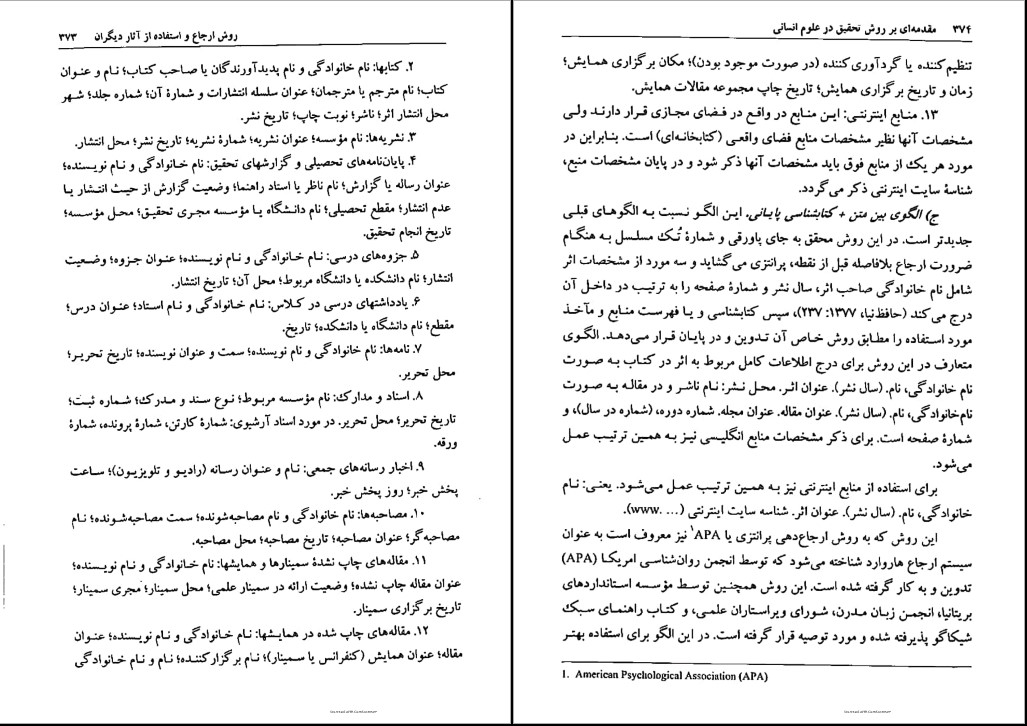 روش ارجاع و استفاده از آثار دیگران ۳۷۳
۲. کتابها: نام خانوادگی و نام پدیدآورندگان یا صاحب کتاب؛ نام و عنوان
کتاب؛ نام مترجم یا مترجمان؛ عنوان سلسله انتشارات و شمارۀ آن؛ شماره جلد؛ شهر
محل انتشار اثر؛ ناشر؛ نوبت چاپ؛ تاریخ نشر.
۳. نشریه‌ها: نام مؤسسه؛ عنوان نشریه؛ شمارۀ نشریه؛ تاریخ نشر؛ محل انتشار.
۴. پایان‌نامه‌های تحصیلی و گزارشهای تحقیق: نام خانوادگی و نام نویسنده؛
عنوان رساله یا گزارش؛ نام ناظر یا استاد راهنما؛ وضعیت گزارش از حیث انتشار یا
عدم انتشار؛ مقطع تحصیلی؛ نام دانشگاه یا مؤسسه مجری تحقیق؛ محل مؤسسه؛
تاریخ انجام تحقیق.
۵. جزوه‌های درسی: نام خانوادگی و نام نویسنده؛ عنوان جزوه؛ وضعیت
انتشار؛ نام دانشکده یا دانشگاه مربوط؛ محل آن؛ تاریخ انتشار.
۶. یادداشتهای درسی در کلاس: نام خانوادگی و نام استاد؛ عنوان درس؛
مقطع؛ نام دانشگاه یا دانشکده؛ تاریخ.
۷. نامه‌ها: نام خانوادگی و نام نویسنده؛ سمت و عنوان نویسنده؛ تاریخ تحریر؛
محل تحریر.
۸. اسناد و مدارک: نام مؤسسه مربوط؛ نوع سند و مدرک؛ شماره ثبت؛
تاریخ تحریر؛ محل تحریر. در مورد اسناد آرشیوی: شمارۀ کارتن، شمارۀ پرونده، شمارۀ
ورقه.
۹. اخبار رسانه‌های جمعی: نام و عنوان رسانه (رادیو و تلویزیون)؛ ساعت
پخش خبر؛ روز پخش خبر.
۱۰. مصاحبه‌ها: نام خانوادگی و نام مصاحبه‌شونده؛ سمت مصاحبه‌شونده؛ نام
مصاحبه‌گر؛ عنوان مصاحبه؛ تاریخ مصاحبه؛ محل مصاحبه.
۱۱. مقاله‌های چاپ نشدۀ سمینارها و همایشها: نام خانوادگی و نام نویسنده؛
عنوان مقاله چاپ نشده؛ وضعیت ارائه در سمینار علمی؛ محل سمینار؛ مجری سمینار؛
تاریخ برگزاری سمینار.
۱۲. مقاله‌های چاپ شده در همایشها: نام خانوادگی و نام نویسنده؛ عنوان
مقاله؛ عنوان همایش (کنفرانس یا سمینار)؛ نام برگزارکننده؛ نام و نام خانوادگی
۳۷۴ مقدمه‌ای بر روش تحقیق در علوم انسانی
تنظیم‌کننده یا گردآوری‌کننده (در صورت موجود بودن)؛ مکان برگزاری همایش؛
زمان و تاریخ برگزاری همایش؛ تاریخ چاپ مجموعه مقالات همایش.
۱۳. منابع اینترنتی: این منابع در واقع در فضای مجازی قرار دارند ولی
مشخصات آنها نظیر مشخصات منابع فضای واقعی (کتابخانه‌ای) است. بنابراین در
مورد هر یک از منابع فوق باید مشخصات آنها ذکر شود و در پایان مشخصات منبع،
شناسۀ سایت اینترنتی ذکر می‌گردد.
ج) الگوی بین متن + کتابشناسی پایانی. این الگو نسبت به الگوهای قبلی
جدیدتر است. در این روش محقق به جای پاورقی و شمارۀ تُک مسلسل به هنگام
ضرورت ارجاع بلافاصله قبل از نقطه، پرانتزی می‌گشاید و سه مورد از مشخصات اثر
شامل نام خانوادگی صاحب اثر، سال نشر و شمارۀ صفحه را به ترتیب در داخل آن
درج می‌کند (حافظ‌نیا، ۱۳۷۷: ۲۳۷)، سپس کتابشناسی و یا فهرست منابع و مآخذ
مورد استفاده را مطابق روش خاص آن تدوین و در پایان قرار می‌دهد. الگوی
متعارف در این روش برای درج اطلاعات کامل مربوط به اثر در کتاب به صورت
نام خانوادگی، نام. (سال نشر). عنوان اثر. محل نشر: نام ناشر و در مقاله به صورت
نام‌خانوادگی، نام. (سال نشر). عنوان مقاله. عنوان مجله. شماره دوره، (شماره در سال)، و
شمارۀ صفحه است. برای ذکر مشخصات منابع انگلیسی نیز به همین ترتیب عمل
می‌شود.
برای استفاده از منابع اینترنتی نیز به همین ترتیب عمل می‌شود. یعنی: نام
خانوادگی، نام. (سال نشر). عنوان اثر. شناسه سایت اینترنتی (... .www).
این روش که به روش ارجاع‌دهی پرانتزی یا APA¹ نیز معروف است به عنوان
سیستم ارجاع هاروارد شناخته می‌شود که توسط انجمن روان‌شناسی امریکا (APA)
تدوین و به کار گرفته شده است. این روش همچنین توسط مؤسسه استانداردهای
بریتانیا، انجمن زبان مدرن، شورای ویراستاران علمی، و کتاب راهنمای سبک
شیکاگو پذیرفته شده و مورد توصیه قرار گرفته است. در این الگو برای استفاده بهتر
1. American Psychological Association (APA)